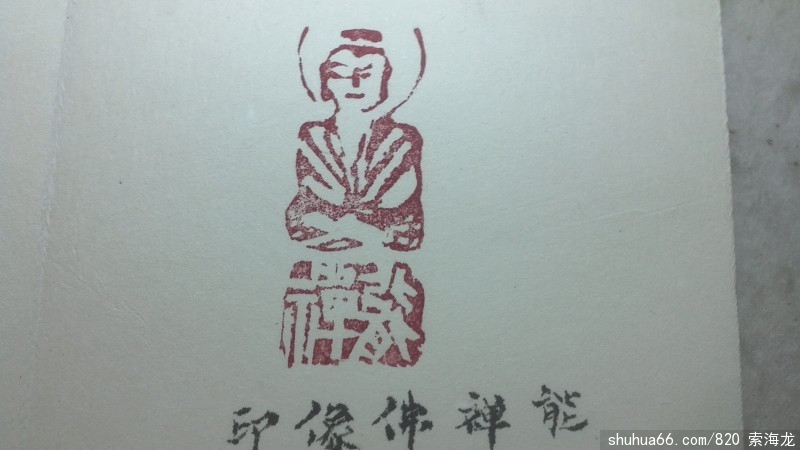 能禅
能禅佛像印
shuhua66.com/820 索海龙